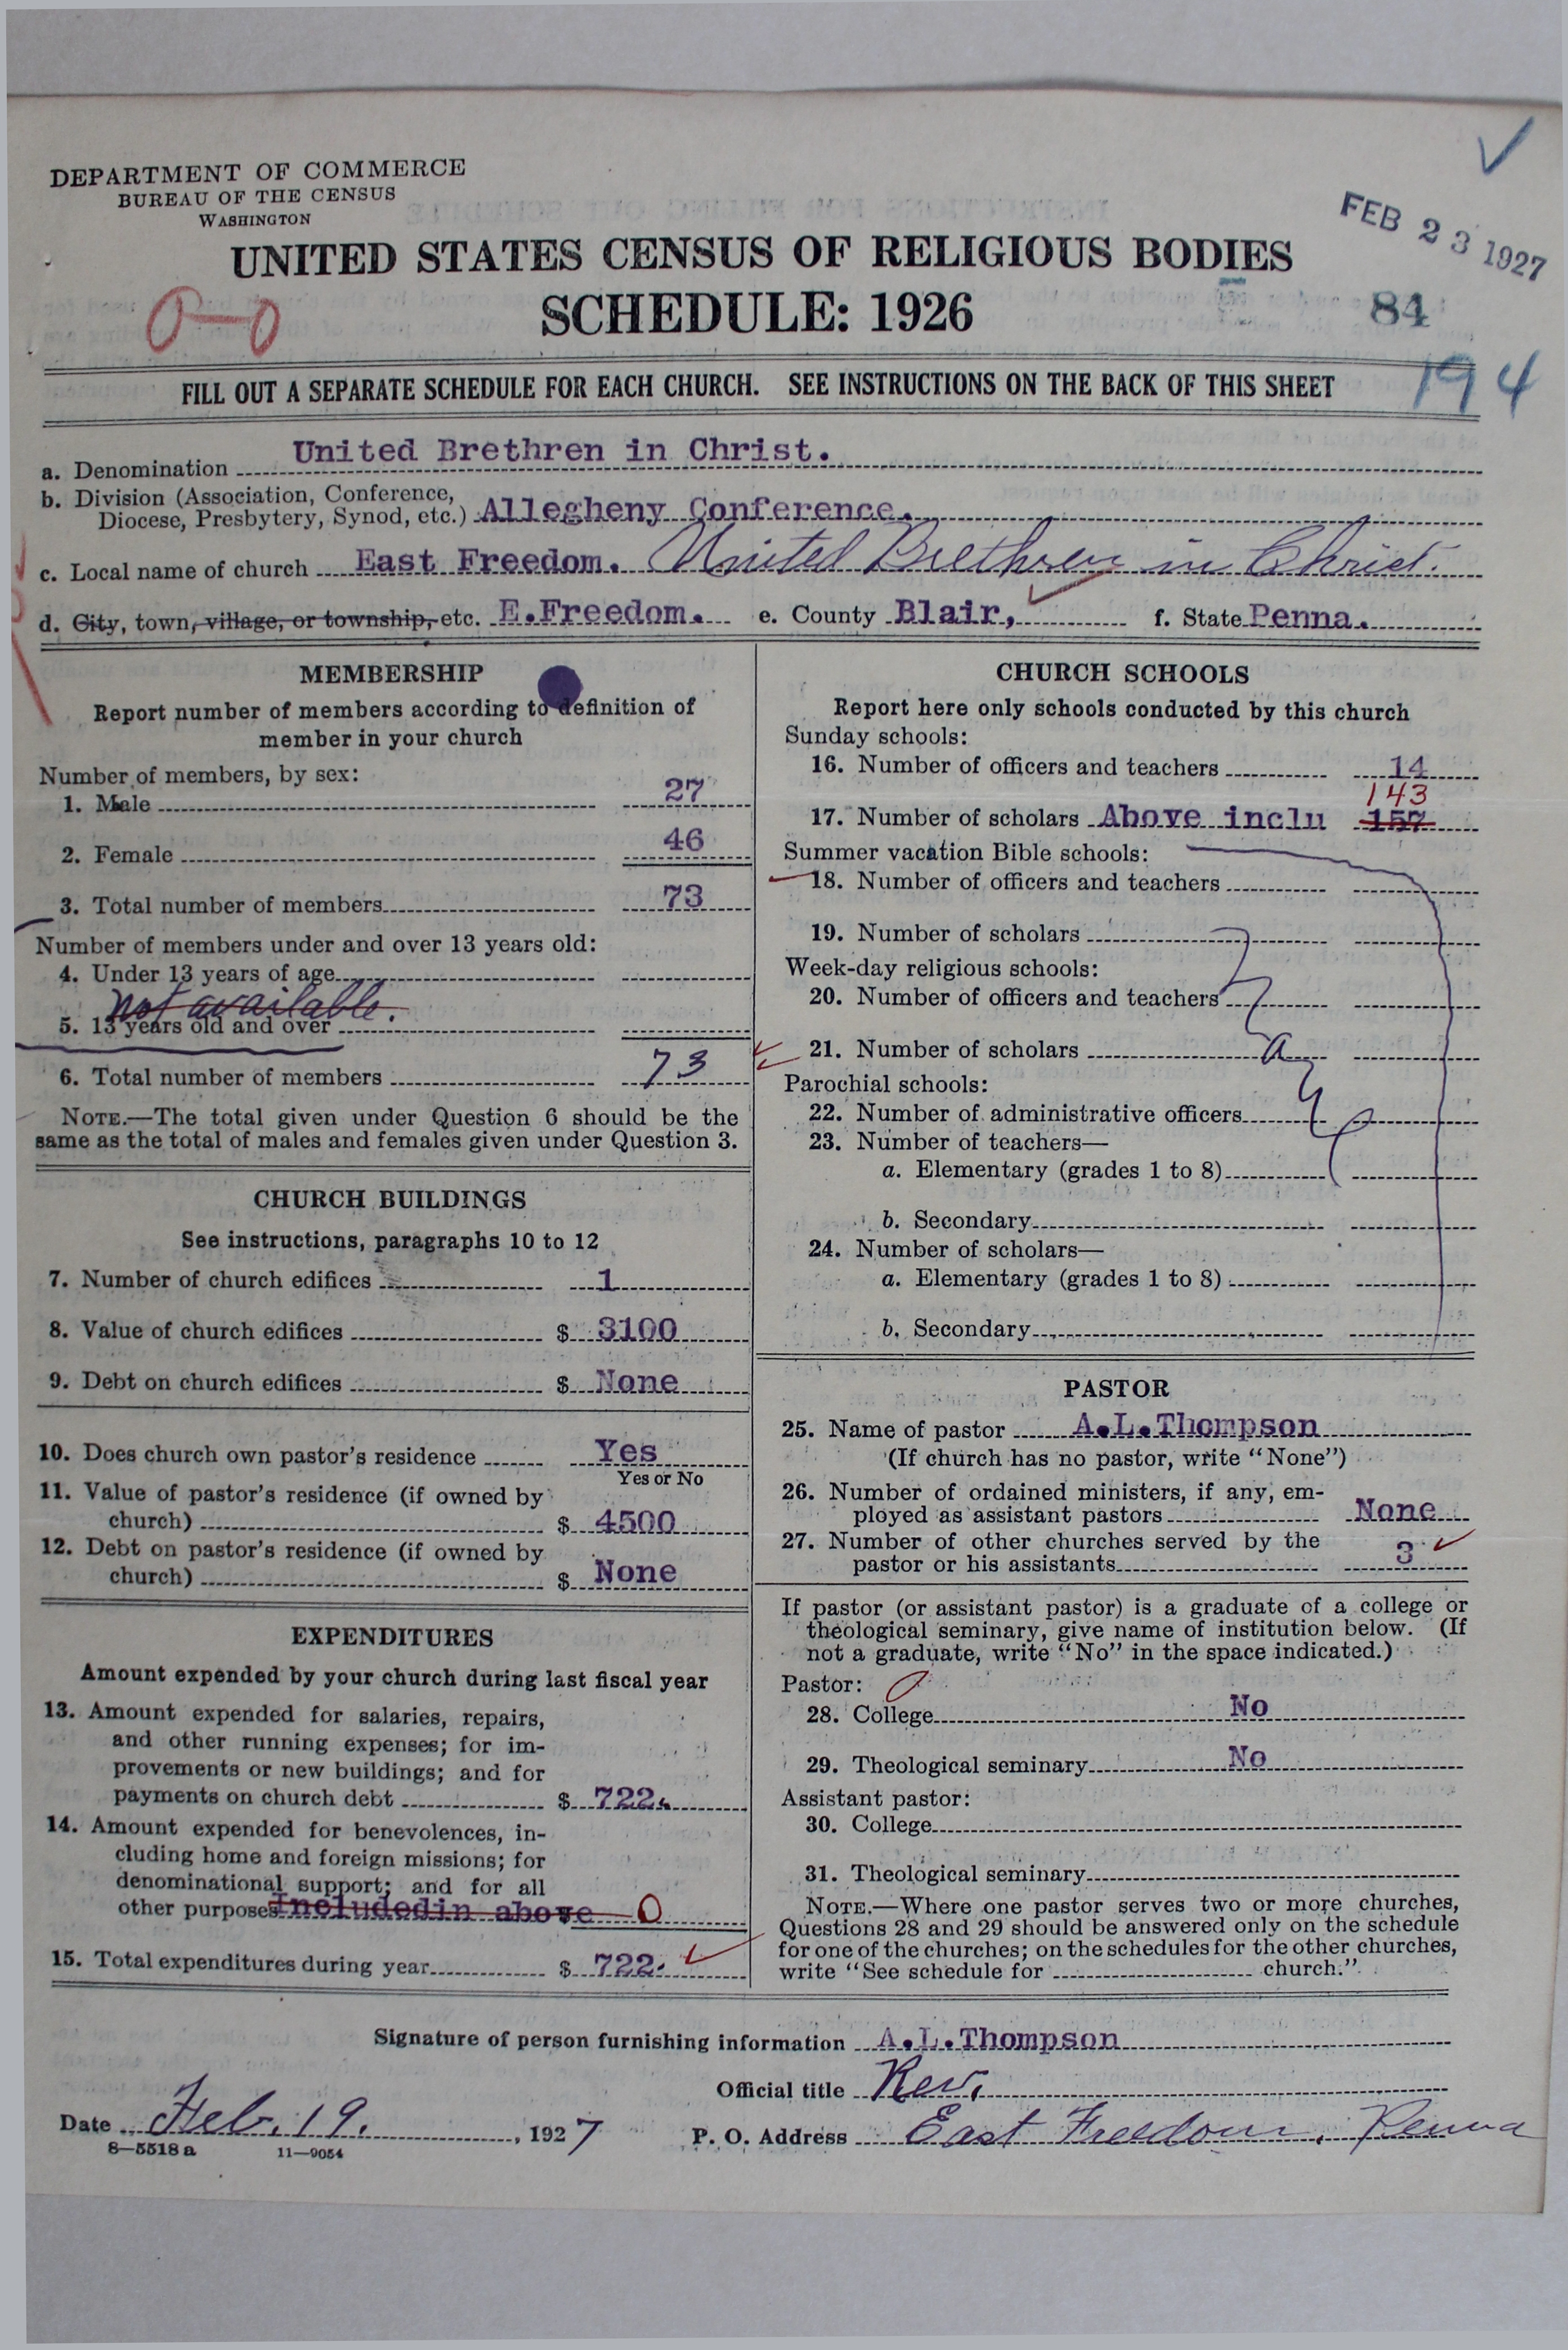 DEPARTMENT OF COMMERCE
BUREAU OF THE CENSUS
WASHINGTON
FEB 23 1927
UNITED STATES CENSUS OF RELIGIOUS BODIES
SCHEDULE: 1926
84
194
FILL OUT A SEPARATE SCHEDULE FOR EACH CHURCH. SEE INSTRUCTIONS ON THE BACK OF THIS SHEET
a. Denomination United Brethren in Christ.
b. Division (Association, Conference,
Diocese, Presbytery, Synod, etc.) Allegheny Conference.
c. Local name of church East Freedom. United Brethren in Christ.
d. City, town, village, or township, etc. E.Freedom. e. County Blair, f. State Penna.
MEMBERSHIP
Report number of members according to definition of
member in your church
Number of members, by sex:
1. Male 27
2. Female 46
3. Total number of members 73
Number of members under and over 13 years old:
4. Under 13 years of age
not available.
5. 13 years old and over
6. Total number of members 73
NOTE.—The total given under Question 6 should be the
same as the total of males and females given under Question 3.
CHURCH BUILDINGS
See instructions, paragraphs 10 to 12
7. Number of church edifices 1
8. Value of church edifices $ 3100
9. Debt on church edifices $ None
10. Does church own pastor's residence Yes
Yes or No
11. Value of pastor's residence (if owned by
church) $ 4500
12. Debt on pastor's residence (if owned by
church) $ None
EXPENDITURES
Amount expended by your church during last fiscal year
13. Amount expended for salaries, repairs,
and other running expenses; for im-
provements or new buildings; and for
payments on church debt $ 722.
14. Amount expended for benevolences, in-
cluding home and foreign missions; for
denominational support; and for all
other purposes Includedin above $ 0
15. Total expenditures during year $ 722.
CHURCH SCHOOLS
Report here only schools conducted by this church
Sunday schools:
16. Number of officers and teachers 14
143
17. Number of scholars Above inclu 157
Summer vacation Bible schools:
18. Number of officers and teachers
19. Number of scholars
Week-day religious schools:
20. Number of officers and teachers
21. Number of scholars
Parochial schools:
22. Number of administrative officers
23. Number of teachers—
a. Elementary (grades 1 to 8)
b. Secondary
24. Number of scholars—
a. Elementary (grades 1 to 8)
b. Secondary
PASTOR
25. Name of pastor A.L.Thompson
(If church has no pastor, write "None")
26. Number of ordained ministers, if any, em-
ployed as assistant pastors None
27. Number of other churches served by the
pastor or his assistants 3
If pastor (or assistant pastor) is a graduate of a college or
theological seminary, give name of institution below. (If
not a graduate, write "No" in the space indicated.)
Pastor:
28. College No
29. Theological seminary No
Assistant pastor:
30. College
31. Theological seminary
NOTE.—Where one pastor serves two or more churches,
Questions 28 and 29 should be answered only on the schedule
for one of the churches; on the schedules for the other churches,
write "See schedule for church."
Signature of person furnishing information A.L.Thompson
Official title Rev.
Date Feb. 19. , 1927 P. O. Address East Freedom, Penna
8—5518 a 11—9054